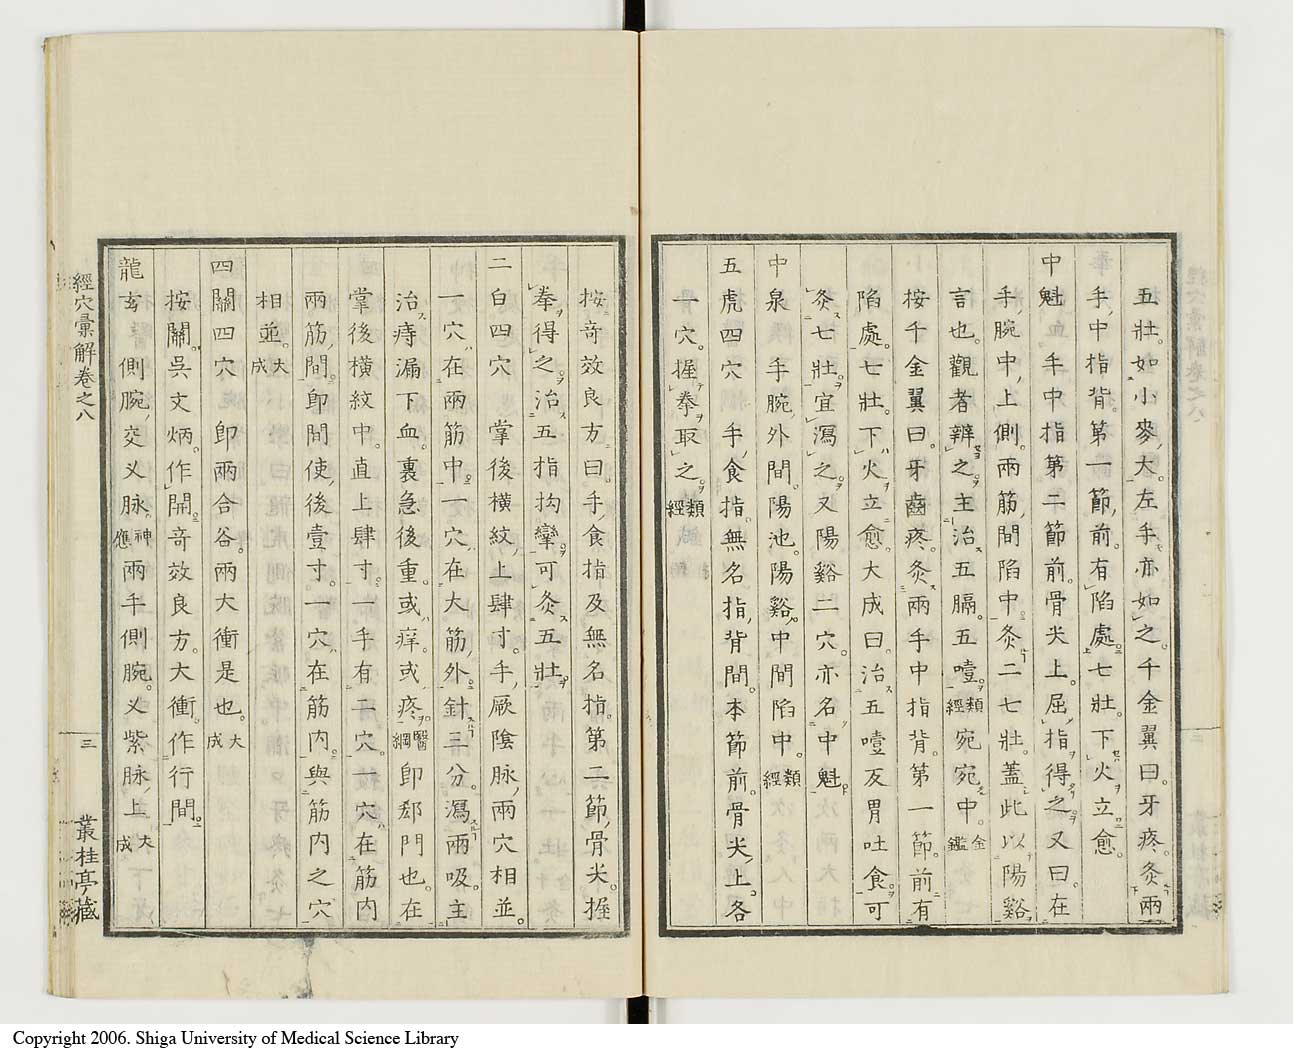 五壯。如小麥大。左手亦如之。千金翼曰。牙疼。灸兩
手中指背第一節前有陷處七壯。下火立愈
中魁 手中指第二節前骨尖上。屈指得之。又曰在
手腕中上側兩筋間陷中。灸二七壯。蓋此以陽谿
言也。觀者辨之。主治五膈。五噎。類經宛宛中。金鑑
按千金翼曰。牙齒疼。灸兩手中指背第一節前有
陷處七壯。下火立愈。大成曰。治五噎反胃吐食。可
灸七壯。宜瀉之。又陽谿二穴。亦名中魁。
中泉 手腕外間陽池。陽谿中間陷中。類經
五虎四穴 手食指。無名指背間。本節前骨尖上。各
一穴。握拳取之。類經
按奇效良方曰。手食指及無名指。第二節骨尖。握
拳得之。治五指拘攣。可灸五壯。
二白四穴 掌後橫紋上肆寸。手厥陰脉兩穴相並。
一穴在兩筋中。一穴在大筋外。針三分。瀉兩吸。主
治痔漏下血。裏急後重。或痒。或疼。醫綱卽郄門也。在
掌後橫紋中。直上肆寸。一手有二穴。一穴在筋內
兩筋間。卽間使後壹寸。一穴在筋內。與筋內之穴
相並。大成
四關四穴 卽兩合谷。兩大衝是也。大成
按關。吳文炳。作開。奇效良方。大衝。作行間。
龍玄 側腕交叉脉。神應兩手側腕。叉紫脉上 大成
經穴彙解卷之八
三
叢桂亭藏
Copyright 2006. Shiga University of Medical Science Library